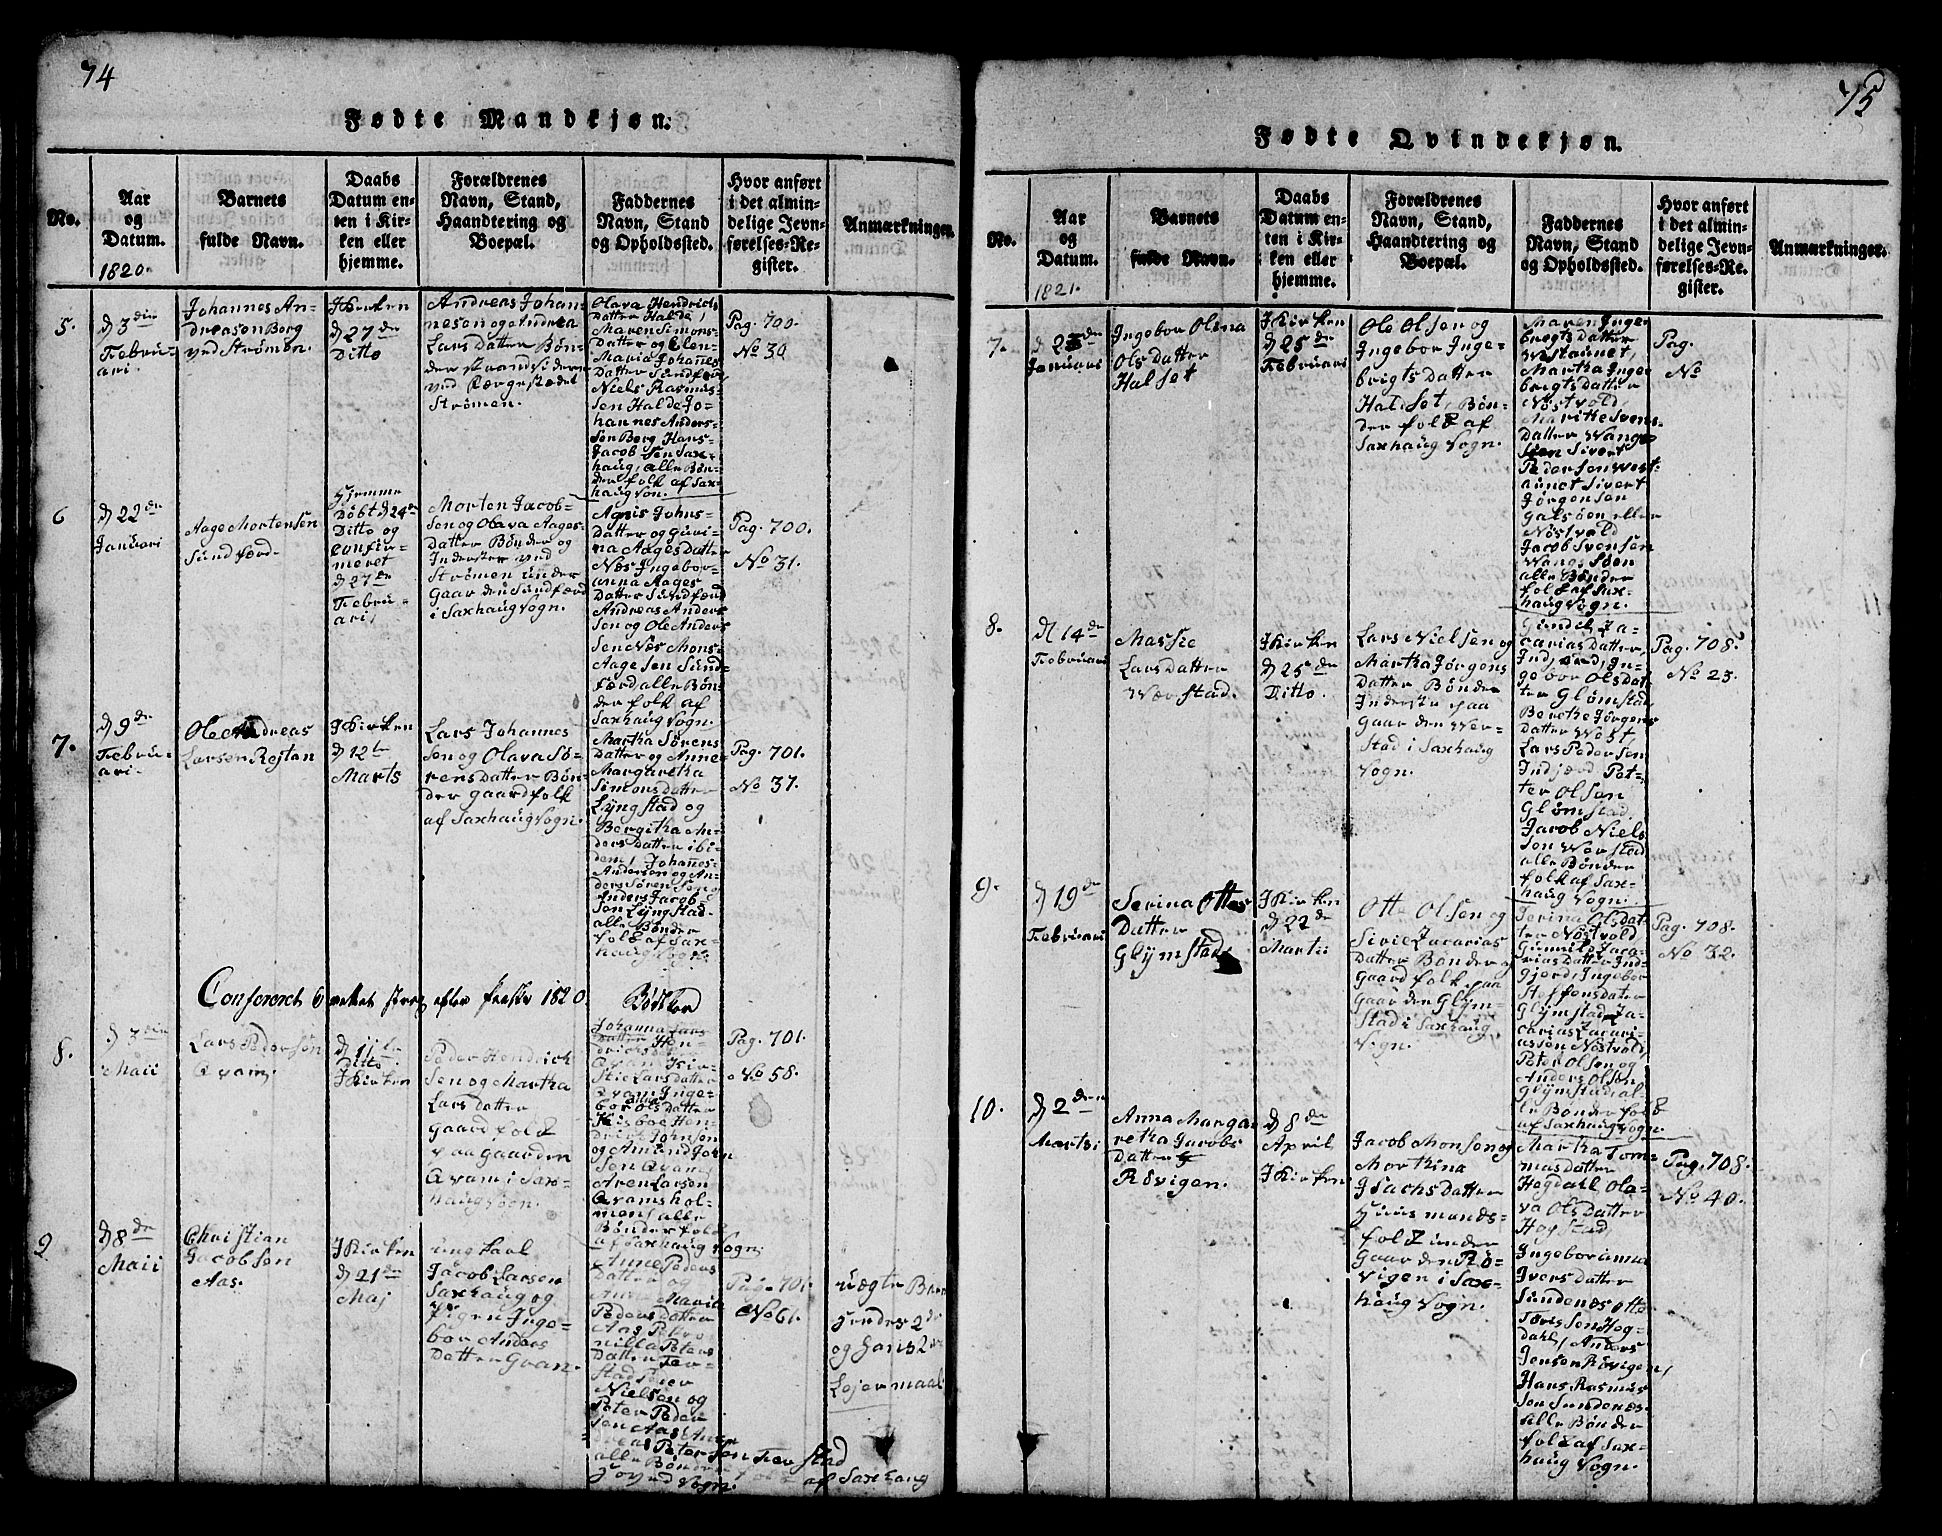 74
Fødte Mandkjøn.
No.
Aar
og
Datum.
1820.
Barnets
fulde Navn.
Daabs
Datum en-
ten i Kir-
ken eller
hjemme.
Forældrenes
Navn, Stand,
Haandtering og
Boepæl.
Faddernes
Navn, Stand
og Opholdssted.
Hvor anført
i det almin-
delige Jevn-
førelses-Re-
gister.
Anmærkninger.
5.
d 3die
Februi-
ari.
Johannes An-
dreasen Borg
ved Strömen.
J Kirken
d 27de
Ditto
Andreas Johan-
nesen og Andrea
Lars Datter Bön-
der Strandsiddere
ved Borgestadet
Strömen.
Olava Hendrichs
Datter Halde,
Maren Simons-
Datter og Elen-
Maria Johannes
Datter Sundfærd
Niels Rasmus-
sen Halde Jo-
hannes Anders-
sen Borg Hans-
Jacob sen Sax-
haug, alle Bön-
derfolk af Sax-
haug Sogn.
Pag. 700.
No 30
6
d 22de
Januari
Aage Mortensen
Sundfærd.
Hjemme
Döbt d 24de
Ditto og
confir-
meret
d 27de
Februi-
ari,
Morten Jacob-
sen og Olava Aages-
Datter Bönder og
Inderster ved
Strömen under
Gaarden Sundfærd
i Saxhaug Sogn.
Agnis Johns-
Datter og Guri-
na Aages Datter
Næs Ingebor-
anna Aages
Datter Sundfærd
Andreas Anders
sen og Ole Anders
sen Næs Mons-
Aagesen Sund-
færd alle Bön-
derfolk af
Saxhaug Sogn.
Pag. 700.
No 31.
7.
d 9de
Februi-
ari.
Ole Andreas
Larsen Rejtan
J Kirken
d 12te
Marts
Lars Johannes
sen og Olava Sö-
rens Datter Bön-
der Gaardfolk
af Saxhaug Sogn.
Martha Sörens
Datter og Anne-
Margaretha
Simons datter
Lyngstad og
Bergitha An-
ders Datter ibi-
dem, Johannes-
Andersen og An-
ders Sörensen
Anders Jacob-
sen Lyngstad-
alle Bönder
folk af Sax-
haug Sogn.
Pag. 701.
No 37.
8.
d 3die
Maii
Lars Pedersön
Qvam.
d 11te
Ditto
J Kirken
Peder Hendrich
sen og Martha
Lars datter
Gaardfolk
paa Gaarden
Qvam i Sax-
haug Sogn.
Johanna Lars
Datter Hen-
Qvam Kir-
stie Lars datter
Qvam Inge-
bor Ols datter
og Amund John
sen Qvam,
Aren Larsen
Qvamshol-
men, alle
Bönder folk
af Saxhaug Sogn.
Pag. 701.
No 58.
d 8de
Maii
Christian
Jacobsen
Aas.
J Kirken
d 21de
Maj
ung karl
Jacob Larsen
Saxhaug og
Pigen Inge-
bor Anders
Datter Gran.
Anne Peders
Datter og
Maria
Peders datter
Aas Petro-
nilla Peters
Datter
Nielsen og
Peter Peder
sen Aas
alle Bönder folk af Saxhaug
Sogn.
Pag. 701.
No 61.
uægte Barn
hendes 2de
og hans 2de
Lejermaal
75
Fødte Qvindekjøn.
No.
Aar
og
Datum.
1821.
Barnets
fulde Navn.
Daabs
Datum en-
ten i Kir-
ken eller
hjemme.
Forældrenes
Navn, Stand,
Haandtering og
Boepæl.
Faddernes
Navn, Stand
og Opholdssted.
Hvor anført
i det almin-
delige Jevn-
førelses-Re-
gister.
Anmærkninger.
7.
Januari
Ingebor Olina
Ols Datter
Halset
J Kirken
d 25de
Februari
Ole Olsen og
Ingebor Inge-
brigts Datter
Haldset, Bön-
der folk af
Saxhaug Sogn.
Maren Inge-
brigts Datter
Westaunet,
Martha Inge
brigts Datter
Nöstvold,
Maritte Svens-
Datter Wangs-
Söen Sivert
Pedersen West-
aunet Sivert
Jörgensen
Galsöen eller
Nöstvold
Jacob Svensen
Wangs Söen
alle Bönder
folk af Sax-
haug Sogn.
Pag.
No
8.
d 14de
Februari
Massie
Lars Datter
Werstad.
J Kirken
d 25de
Ditto.
Lars Nielsen og
Martha Jörgens
Datter Bönder
Inderste paa
Gaarden Wer-
stad i Saxhaug
Sogn.
Gundel Za-
carias Datter,
Ind, Ing-
gebor Ols dat-
ter Glömstad
Berethe Jörgens
Datter West,
Lars Peder sen
Indfjærd Pet-
ter Olsen
Glömstad,
Jacob Niels
sen Werstad
alle Bönder
folk af Sax-
haug Sogn.
Pag. 708.
No 23.
9.
d 19de
Februari
Serina Ottes
Datter
Glymstad
J Kirken
d 22de
Martii
Otte Olsen og
Sivie Zacarias
Datter Bönder og
Gaardfolk paa
Gaarden Glym-
stad i Saxhaug
Sogn.
Serina Olsdat-
ter Nöstvold
Gunnild Zaca-
rias Datter Ind-
gjerd, Ingebor
Steffens datter
Glymstad Za-
carias Zacari-
assen Nöstvold,
Peter Olsen og
Anders Olsen
Glymstad, al-
le Bönder folk
af Saxhaug Sogn.
Pag. 708.
No 32.
10.
d 2den
Martsi
Anna Marga-
retha Jacobs
Datter
Rövigen.
d 8de
April
J Kirken
Jacob Monsen og
Marthina
Isachs Datter
Huusmands-
folk under
Gaarden Rö-
vigen i Sax-
haug Sogn.
Martha Tom-
mas datter
Hegdahl Ola-
va Ols Datter
Hogstad,
Ingeborianna
Ivers datter
Sundenes Otte
Hog-
dahl, Anders
Jensen Rövigen,
Hans Rasmus-
sen Sundenes-
alle Bönder
folk af Sax-
haug Sogn.
Pag. 708.
No 40.